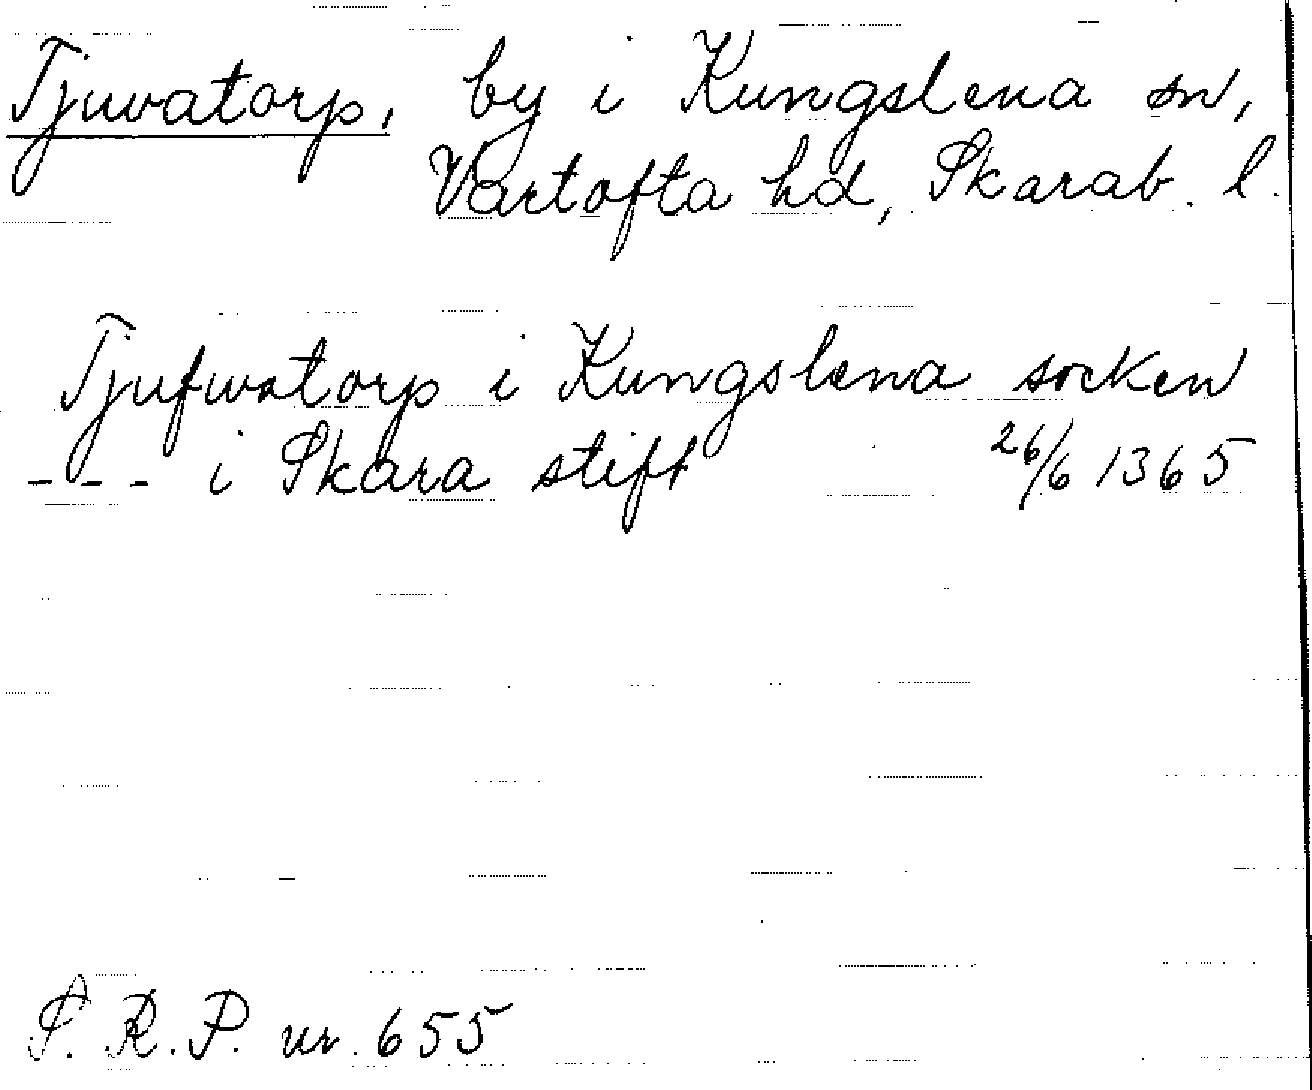 Tjuvatorp, by i Kungslena sn,
Vartofta hd, Skarab. l.
Tjufvatorp i Kungslena socken
- - - i Skara stift 26/6 1365
S. R. P. nr. 655